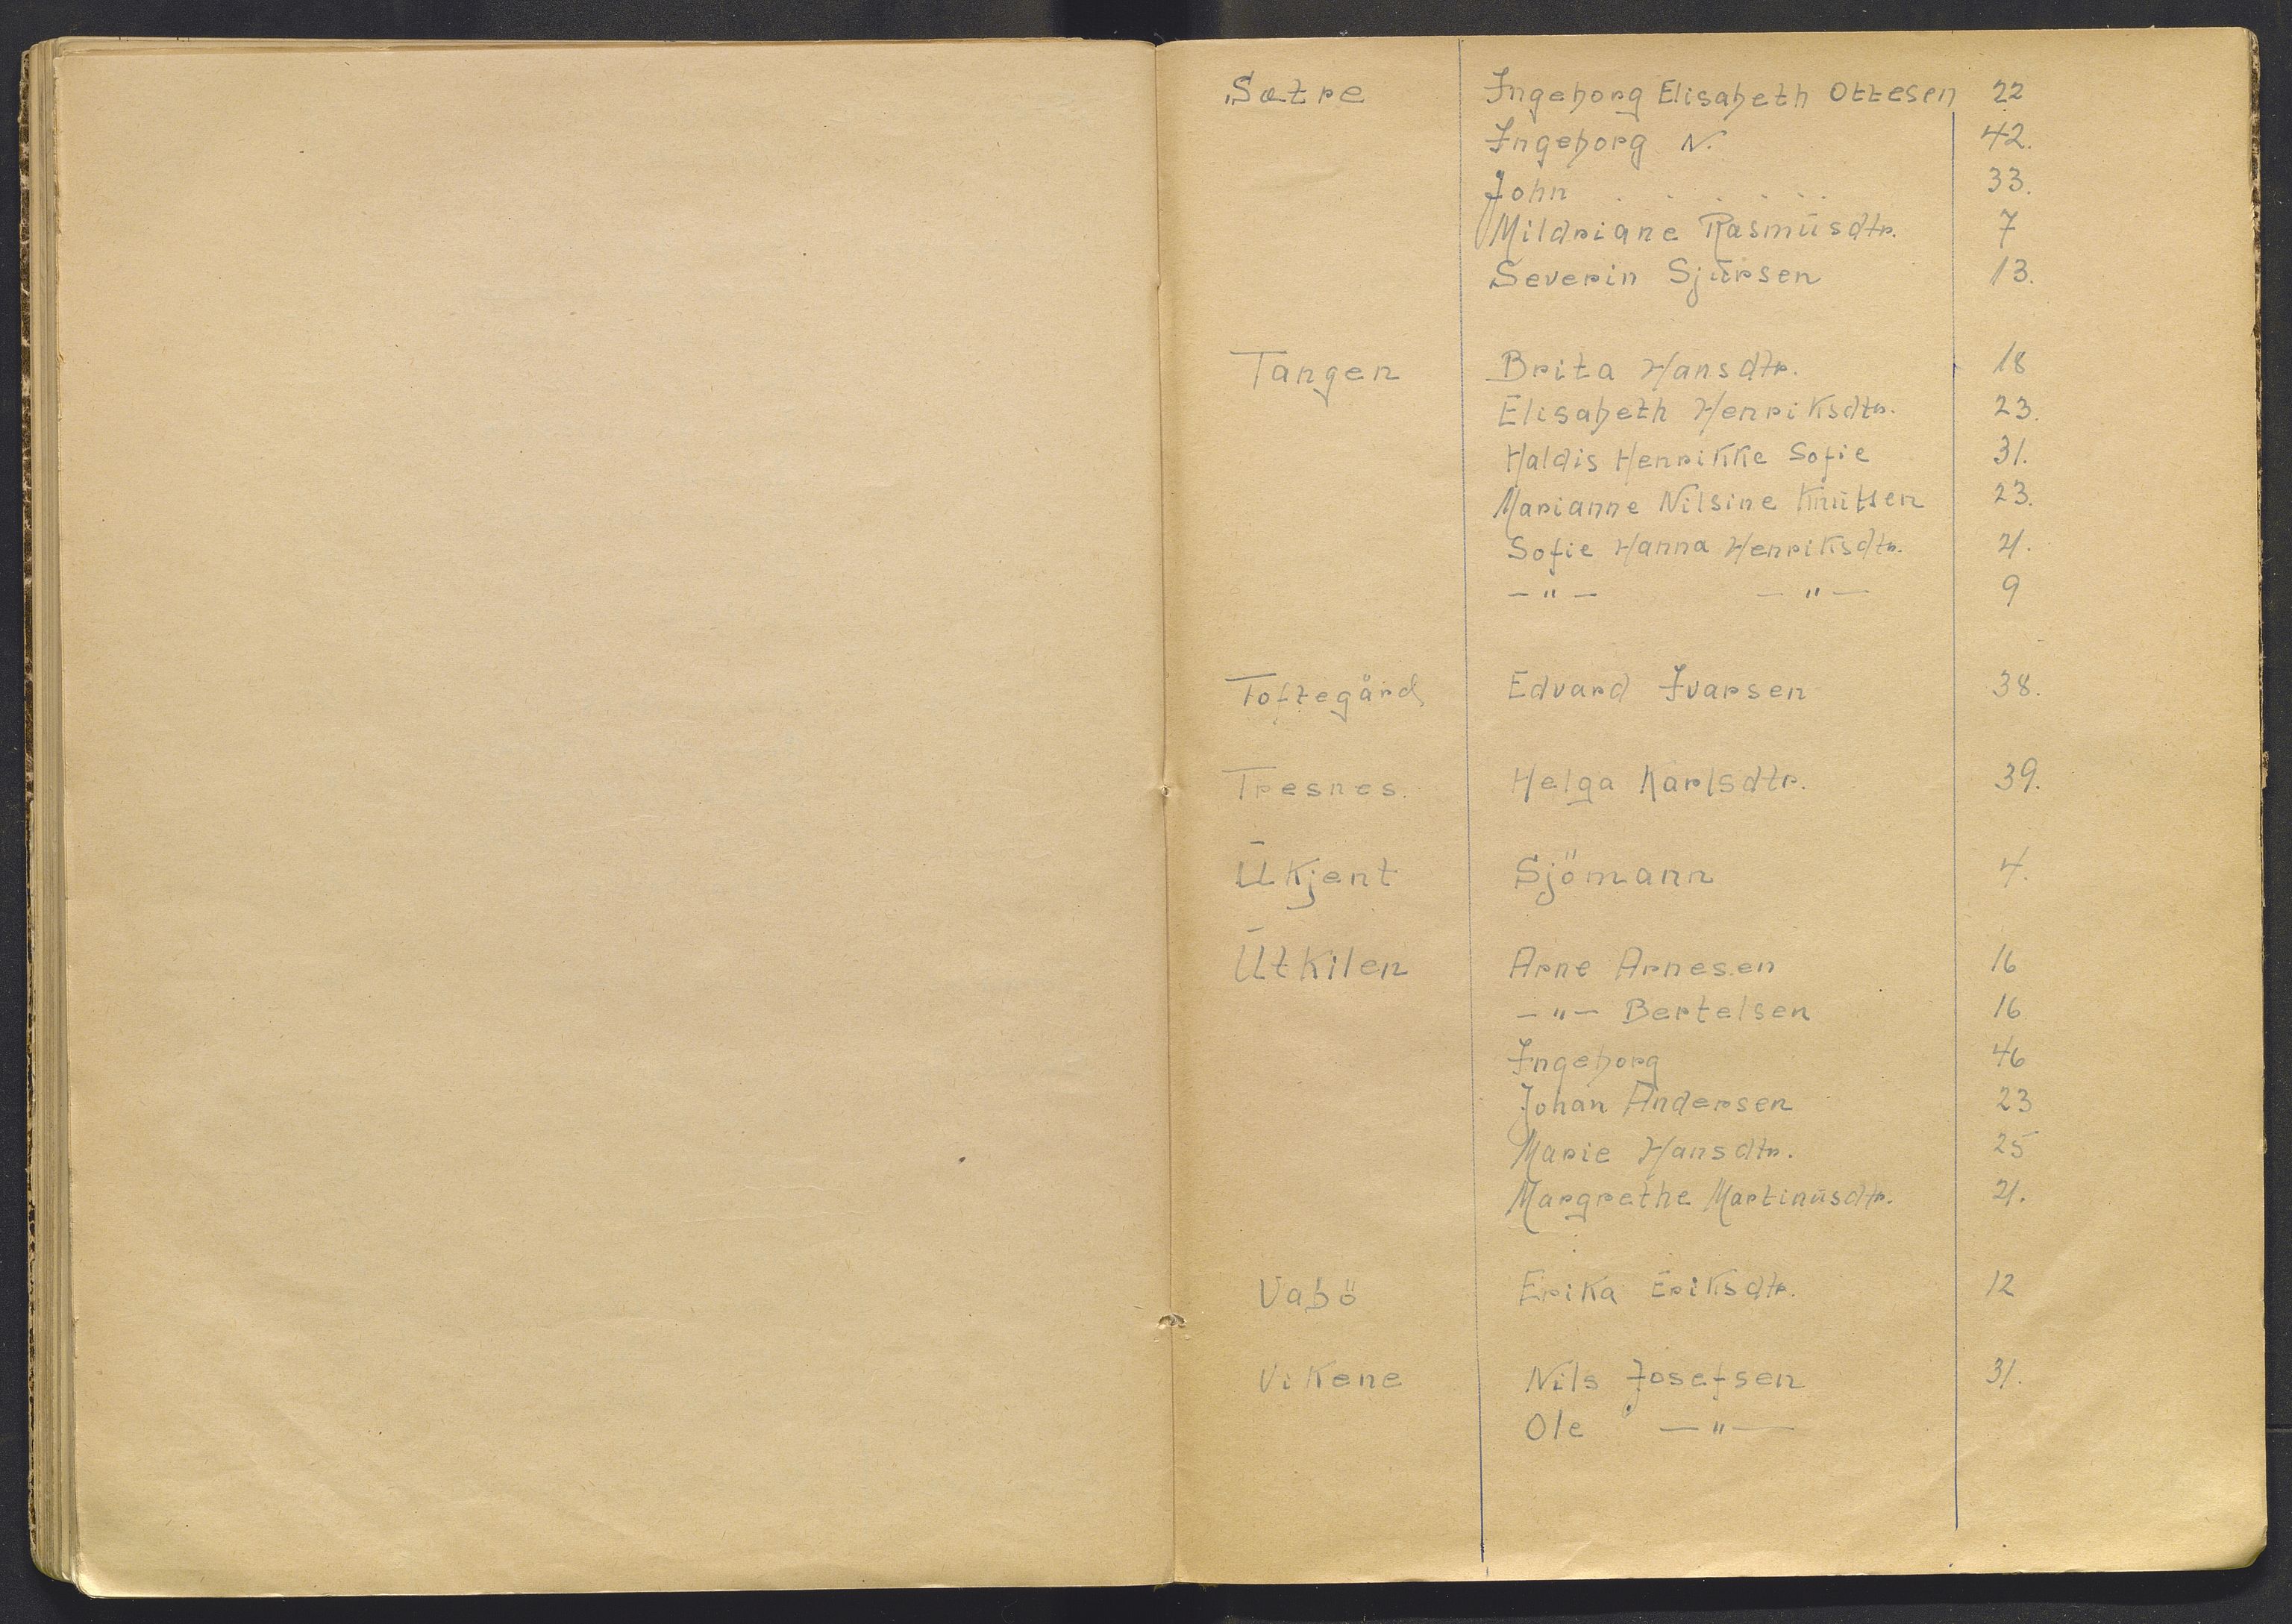 Sætre Ingeborg Elisabeth Ottesen 22
Ingeborg N. 42.
John . . . . . . 33.
Mildriane Rasmūsdtr. 7
Severin Sjūrsen 13.
Tangen Brita Hansdtr. 18
Elisabeth Henriksdtr. 23.
Haldis Henrikke Sofie 31.
Marianne Nilsine Knūtsen 23.
Sofie Hanna Henriksdtr. 21.
— " — — " — 9
Toftegård Edvard Ivarsen 38.
Tresnes. Helga Karlsdtr. 39.
Ūkjent Sjömann 4.
Ūtkilen Arne Arnesen 16
— " — Bertelsen 16
Ingeborg 46
Johan Andersen 23
Marie Hansdtr. 25
Margrethe Martinūsdtr. 21.
Vabö Erika Eriksdtr. 12
Vikene Nils Josefsen 31.
Ole — " —